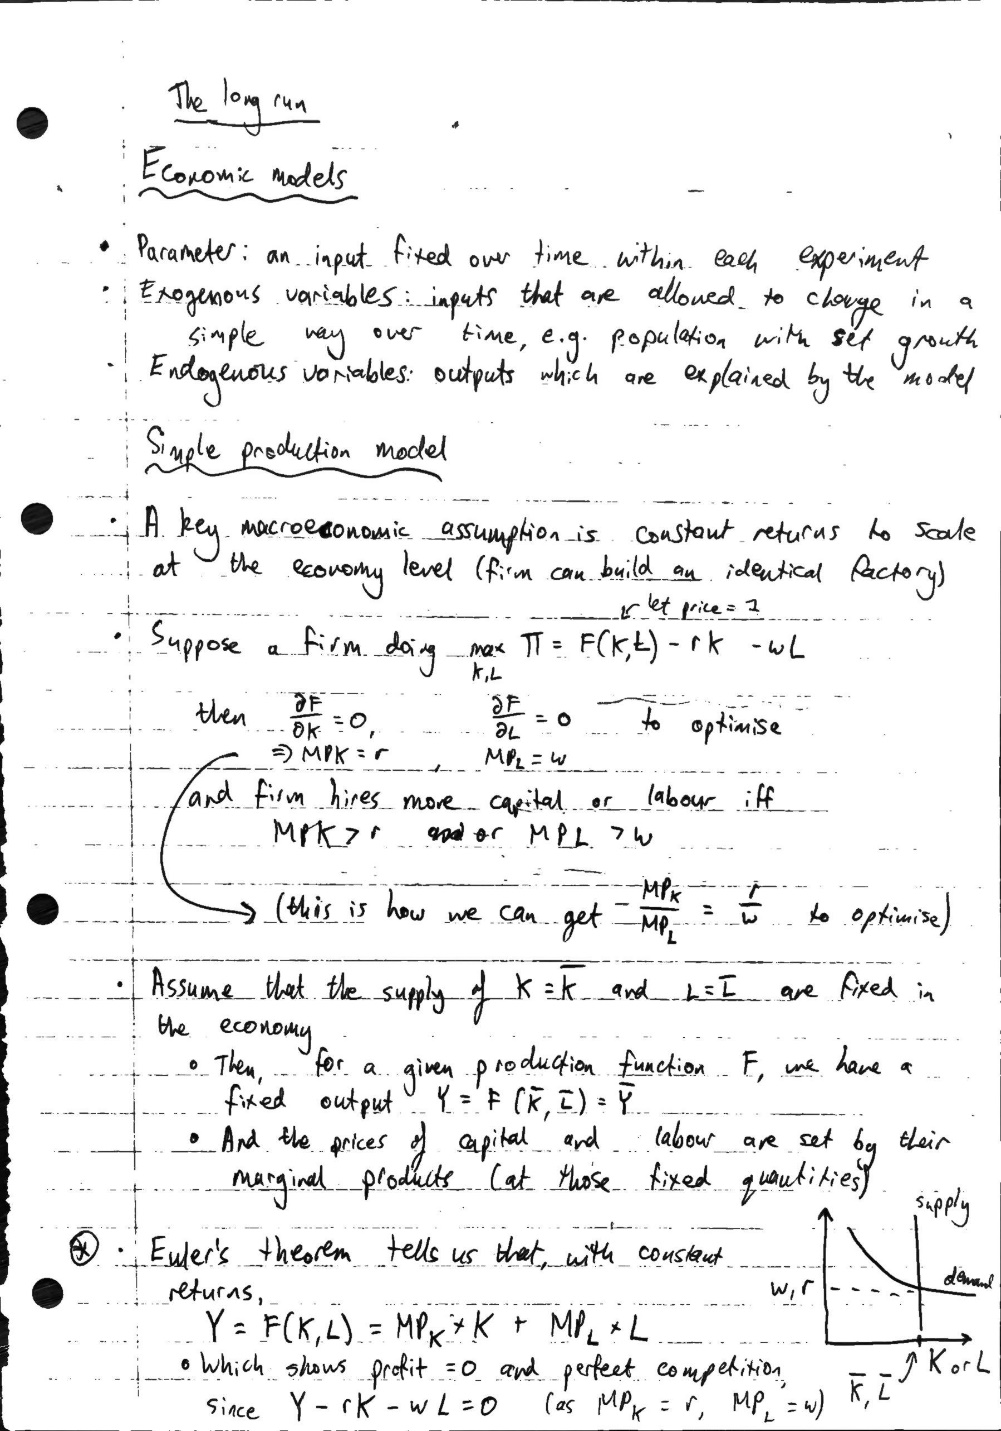 The long run
Economic models
• Parameter: an input fixed over time within each experiment
• Exogenous variables: inputs that are allowed to change in a
simple way over time, e.g. population with set growth
• Endogenous variables: outputs which are explained by the model
Simple production model
• A key macroeconomic assumption is constant returns to scale
at the economy level (firm can build an identical factory)
↙ let price = 1
• Suppose a firm doing max Π = F(K,L) - rK - wL
K,L
then ∂F/∂K = 0, ∂F/∂L = 0 to optimise
⇒ MPK = r , MP_L = w
and firm hires more capital or labour iff
MPK > r or MPL > w
→ (this is how we can get - MP_K/MP_L = r/w to optimise)
• Assume that the supply of K = K̄ and L = L̄ are fixed in
the economy
• Then, for a given production function F, we have a
fixed output Y = F(K̄, L̄) = Ȳ
• And the prices of capital and labour are set by their
marginal products (at those fixed quantities)
⊛ • Euler's theorem tells us that, with constant
returns,
Y = F(K,L) = MP_K × K + MP_L × L
• Which shows profit = 0 and perfect competition,
since Y - rK - wL = 0 (as MP_K = r, MP_L = w)
supply
demand
w, r
K or L
K̄, L̄